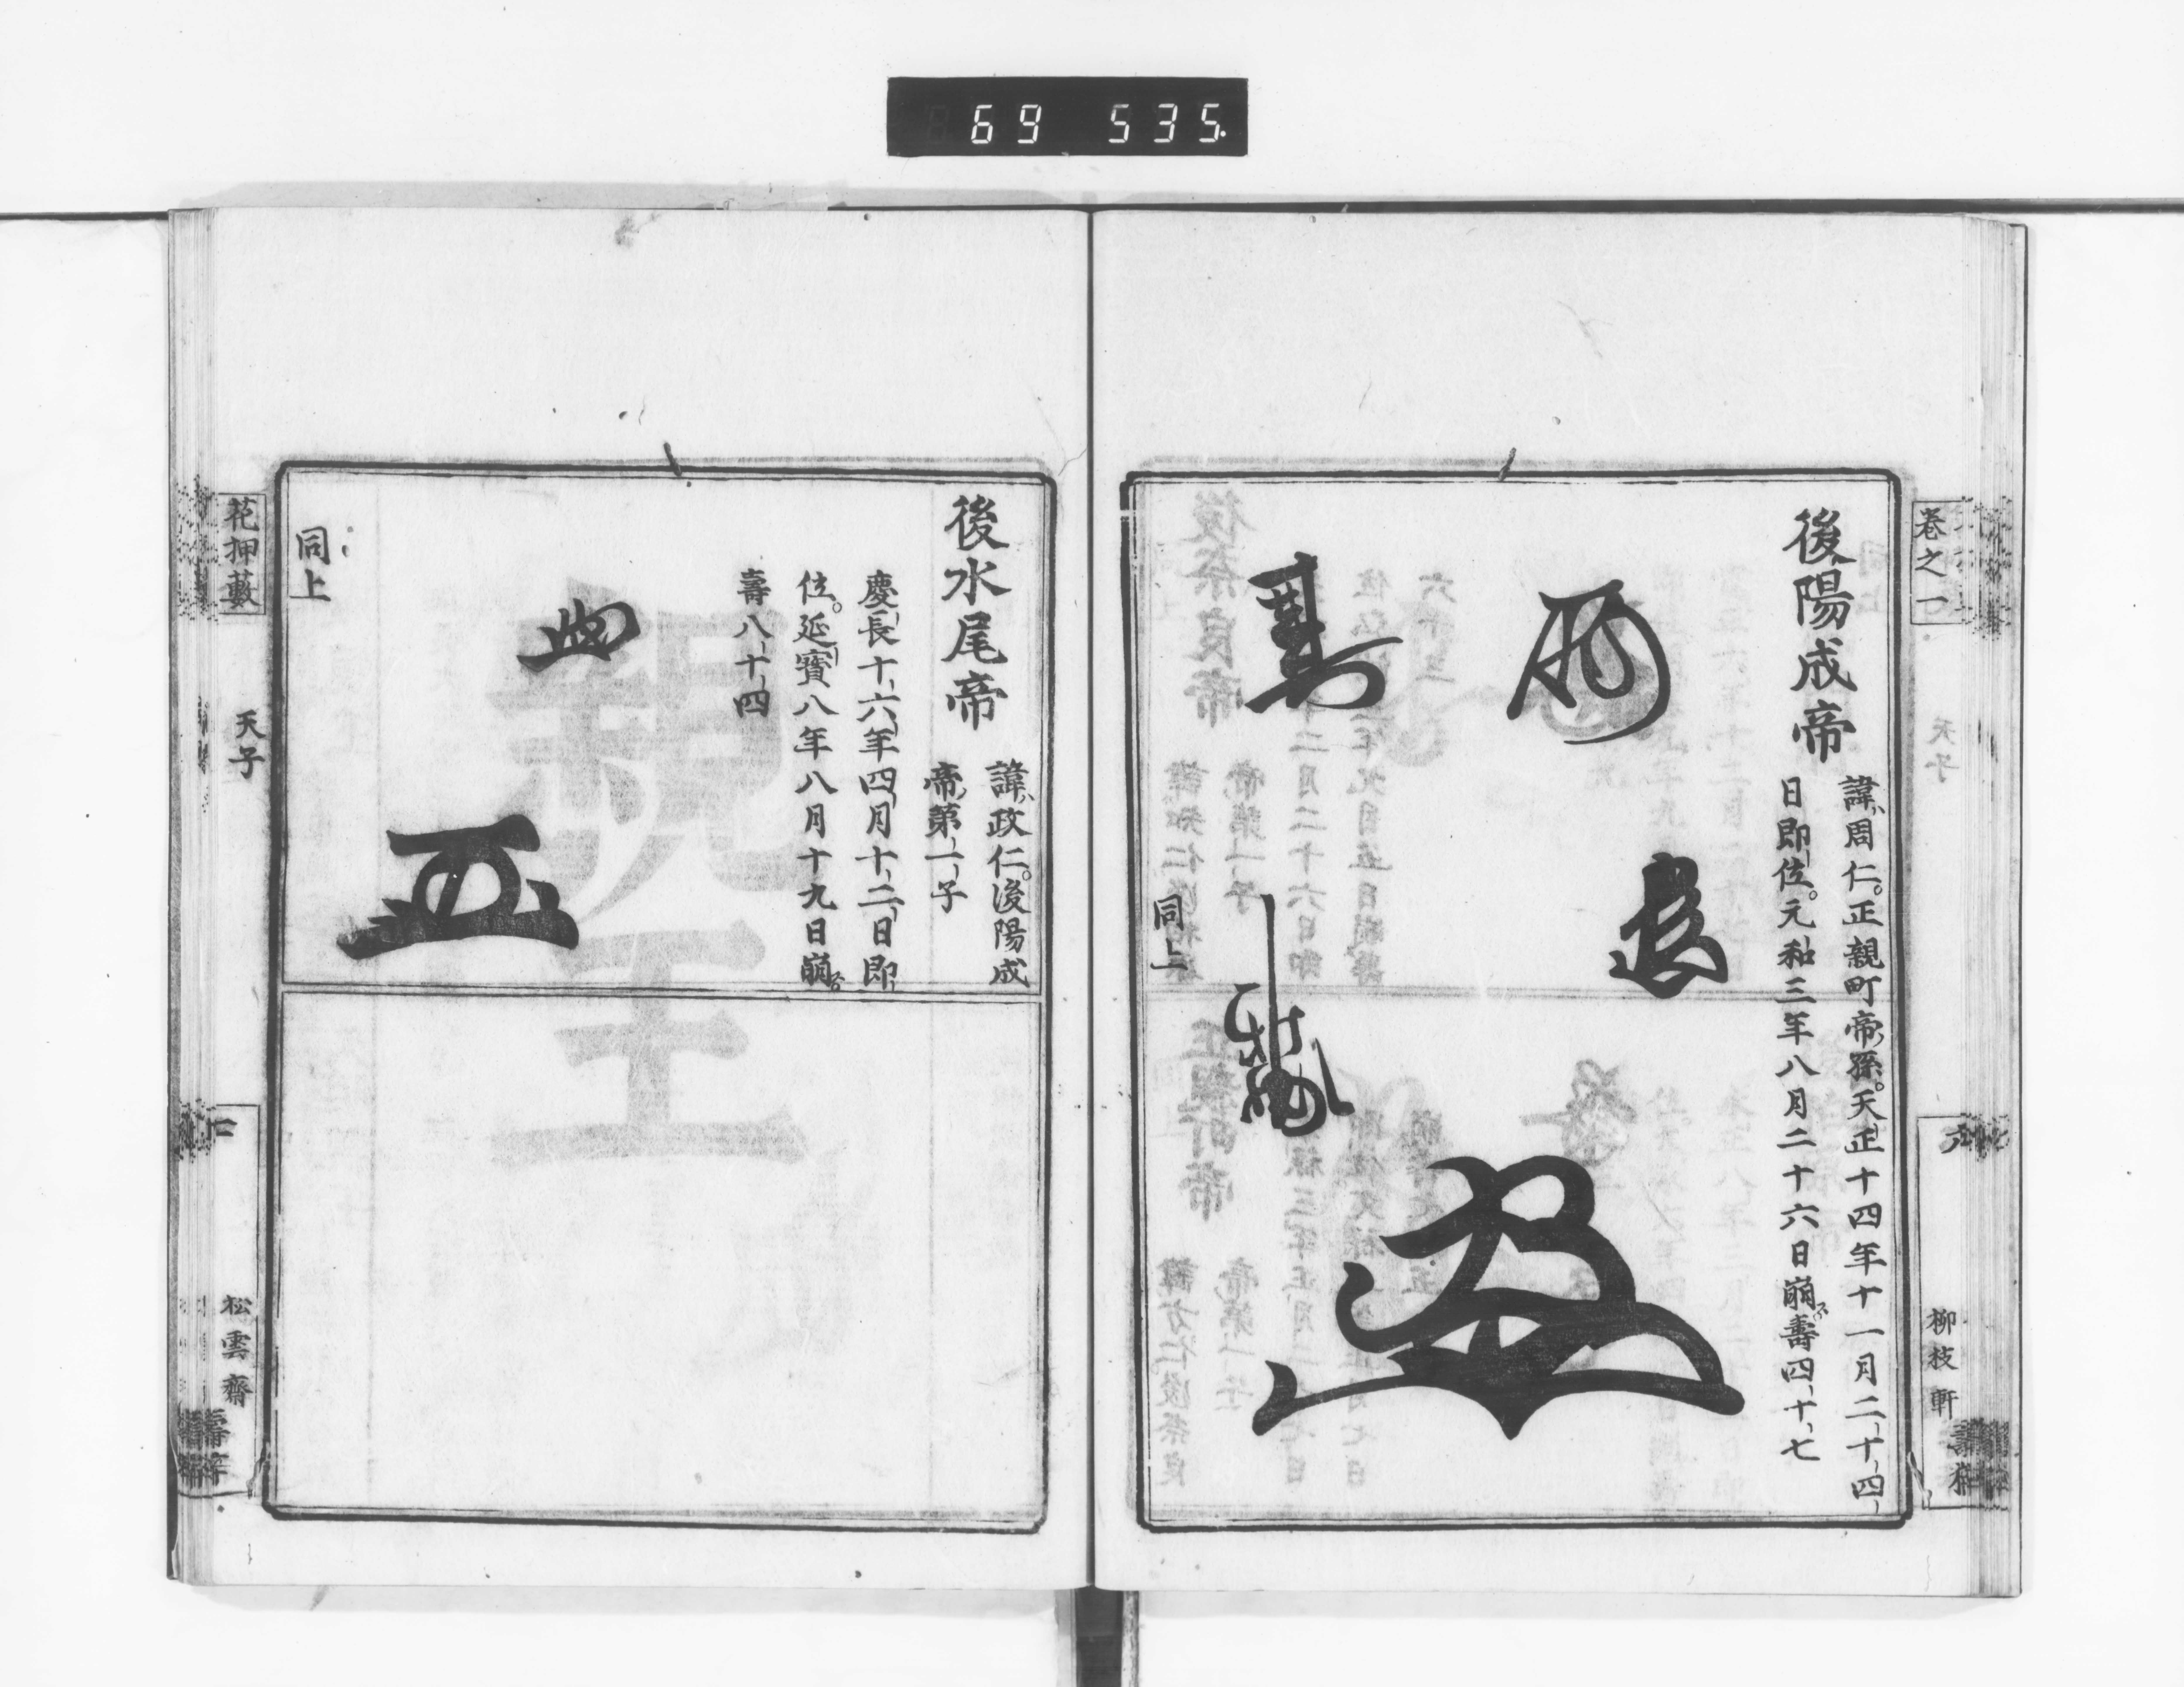 69 535.
卷之一
六
柳枝軒
後陽成帝
諱周仁。正親町帝孫。天正十四年十一月二十四
日即位。元和三年八月二十六日崩。壽四十七
同上
後水尾帝
諱政仁。後陽成
帝第一子
慶長十六年四月十二日即
位。延寶八年八月十九日崩。
壽八十四
同上
花押藪
天子
七
松雲齋